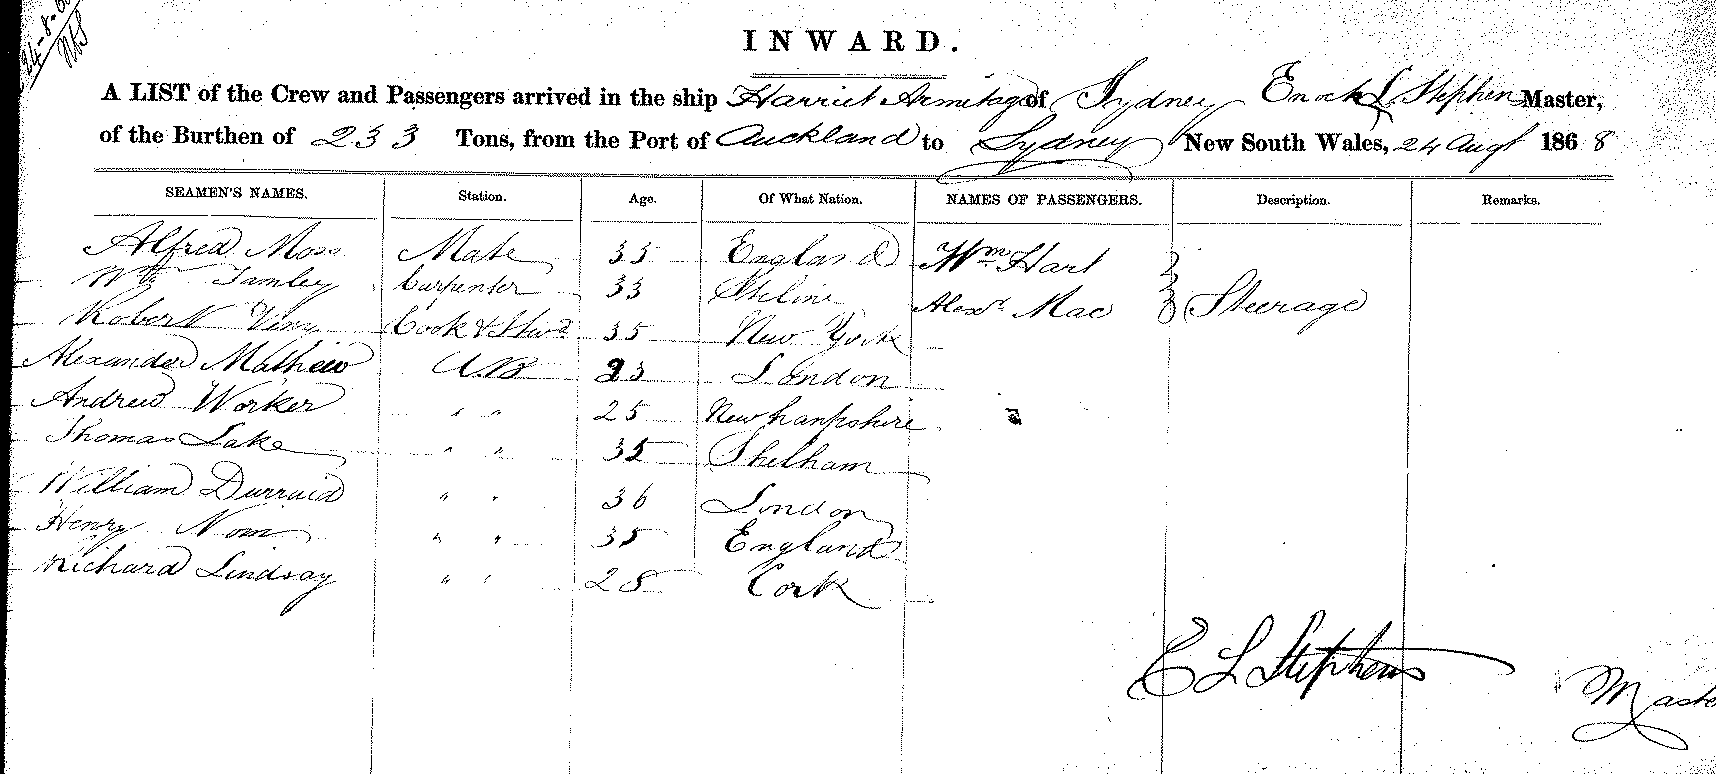 24-8-68
INWARD.
A LIST of the Crew and Passengers arrived in the ship Harriet Armitage of Sydney Enoch L Stephens Master,
of the Burthen of 233 Tons, from the Port of Auckland to Sydney New South Wales, 24 Augt 1868
SEAMEN'S NAMES. Station. Age. Of What Nation. NAMES OF PASSENGERS. Description. Remarks.
Alfred Moss Mate 35 England Wm Hart
Wm Carpenter 33
Alexr Mac Steerage
Robert Cook & Stwd 35 New York
Alexander Mathew A.B 23 London
Andrew Worker " " 25 Newhampshire
Thomas Lake " " 35 Shelham
William " " 36 London
Henry " " 35 England
Richard Lindsay " " 28 Cork
E L Stephens
Maste